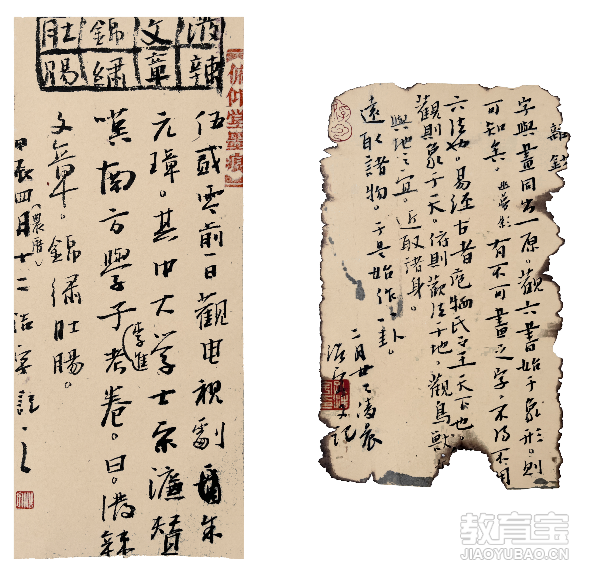 潑辣
文章
錦繡
肚腸
伍貳零前一日觀电視劇朱
元璋。其中大学士宋濂贊
嘆南方學子李進考卷。曰。潑辣
文章。錦繡肚腸。
甲辰四月(農曆)十二
字與畫同出一原。觀六書始于象形。則
可知矣。有不可畫之字。不得不同
六法也。易經古者庖牺氏之王天下也。
觀則象于天。俯則觀法于地。觀鳥獸
與地之宜。近取諸身。
遠取諸物。于是始作八卦。
二月廿二凌晨
教育宝
JIAOYUBAO.CN